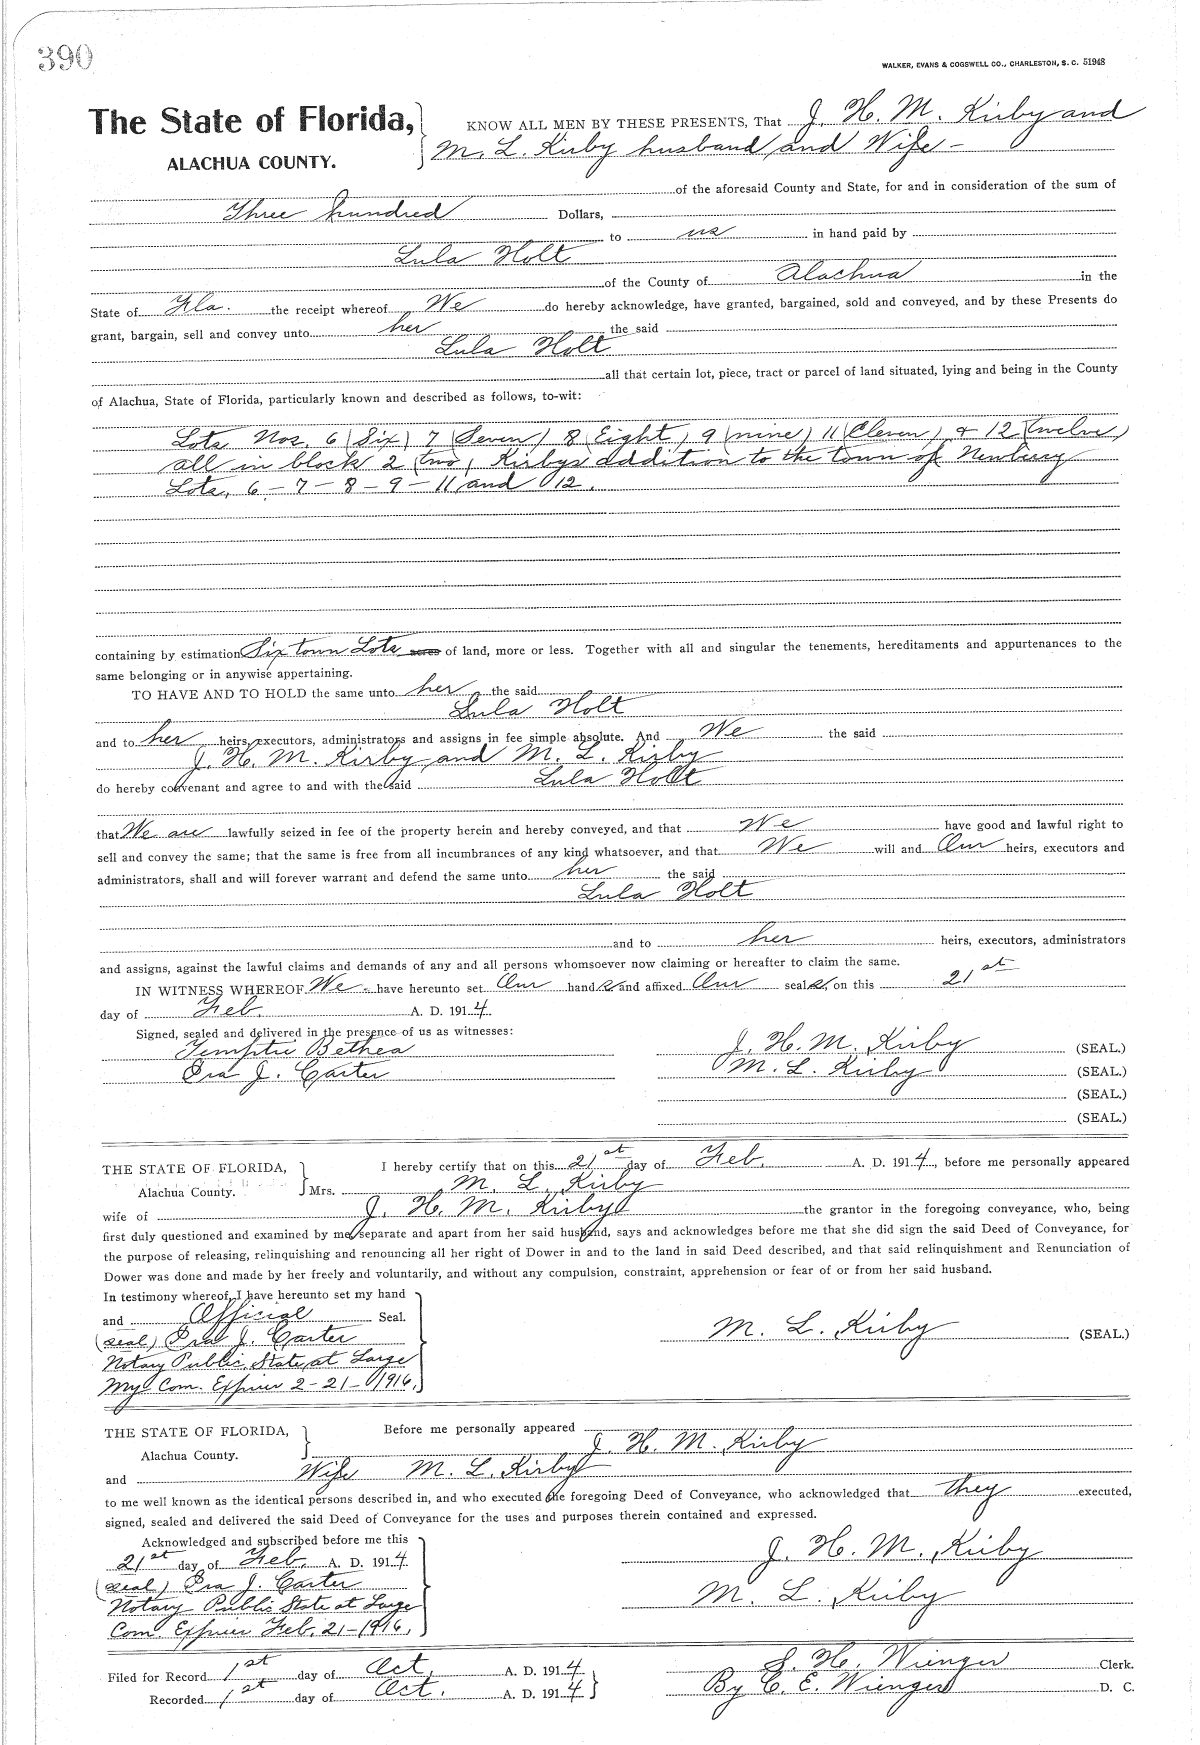 390
WALKER, EVANS & COGSWELL CO., CHARLESTON, S. C. 51948
The State of Florida,
ALACHUA COUNTY.
KNOW ALL MEN BY THESE PRESENTS, That J. H. M. Kirby and
M. L. Kirby husband and Wife -
of the aforesaid County and State, for and in consideration of the sum of
Three hundred Dollars,
to us in hand paid by
Lula Holt
of the County of Alachua in the
State of Fla. the receipt whereof We do hereby acknowledge, have granted, bargained, sold and conveyed, and by these Presents do
grant, bargain, sell and convey unto her the said
Lula Holt
all that certain lot, piece, tract or parcel of land situated, lying and being in the County
of Alachua, State of Florida, particularly known and described as follows, to-wit:
Lots Nos. 6 (Six) 7 (Seven) 8 (Eight) 9 (nine) 11 (Eleven) & 12 (twelve)
all in block 2 (two) Kirbys addition to the town of Newberry
Lots, 6 - 7 - 8 - 9 - 11 and 12.
containing by estimation Six town Lots acres of land, more or less. Together with all and singular the tenements, hereditaments and appurtenances to the
same belonging or in anywise appertaining.
TO HAVE AND TO HOLD the same unto her the said
Lula Holt
and to her heirs, executors, administrators and assigns in fee simple absolute. And We the said
J. H. M. Kirby and M. L. Kirby
do hereby convenant and agree to and with the said Lula Holt
that We are lawfully seized in fee of the property herein and hereby conveyed, and that We have good and lawful right to
sell and convey the same; that the same is free from all incumbrances of any kind whatsoever, and that We will and Our heirs, executors and
administrators, shall and will forever warrant and defend the same unto her the said
Lula Holt
and to her heirs, executors, administrators
and assigns, against the lawful claims and demands of any and all persons whomsoever now claiming or hereafter to claim the same.
IN WITNESS WHEREOF We have hereunto set Our hands and affixed Our seals, on this 21st
day of Feb. A. D. 1914.
Signed, sealed and delivered in the presence of us as witnesses:
Temptie Bethea
Ira J. Carter
J. H. M. Kirby (SEAL.)
M. L. Kirby (SEAL.)
(SEAL.)
(SEAL.)
THE STATE OF FLORIDA,
Alachua County.
I hereby certify that on this 21st day of Feb. A. D. 1914, before me personally appeared
Mrs. M. L. Kirby
wife of J. H. M. Kirby the grantor in the foregoing conveyance, who, being
first duly questioned and examined by me, separate and apart from her said husband, says and acknowledges before me that she did sign the said Deed of Conveyance, for
the purpose of releasing, relinquishing and renouncing all her right of Dower in and to the land in said Deed described, and that said relinquishment and Renunciation of
Dower was done and made by her freely and voluntarily, and without any compulsion, constraint, apprehension or fear of or from her said husband.
In testimony whereof, I have hereunto set my hand
and Official Seal.
(seal) Ira J. Carter
Notary Public, State at Large
My Com. Expires 2-21-1916.
M. L. Kirby (SEAL.)
THE STATE OF FLORIDA,
Alachua County.
Before me personally appeared
J. H. M. Kirby
and Wife M. L. Kirby
to me well known as the identical persons described in, and who executed the foregoing Deed of Conveyance, who acknowledged that they executed,
signed, sealed and delivered the said Deed of Conveyance for the uses and purposes therein contained and expressed.
Acknowledged and subscribed before me this
21st day of Feb. A. D. 1914.
(seal) Ira J. Carter
Notary Public State at Large
Com. Expires Feb. 21-1916.
J. H. M. Kirby
M. L. Kirby
Filed for Record 1st day of Oct. A. D. 1914
Recorded 1st day of Oct. A. D. 1914
S. H. Wienger Clerk.
By C. E. Wienger D. C.